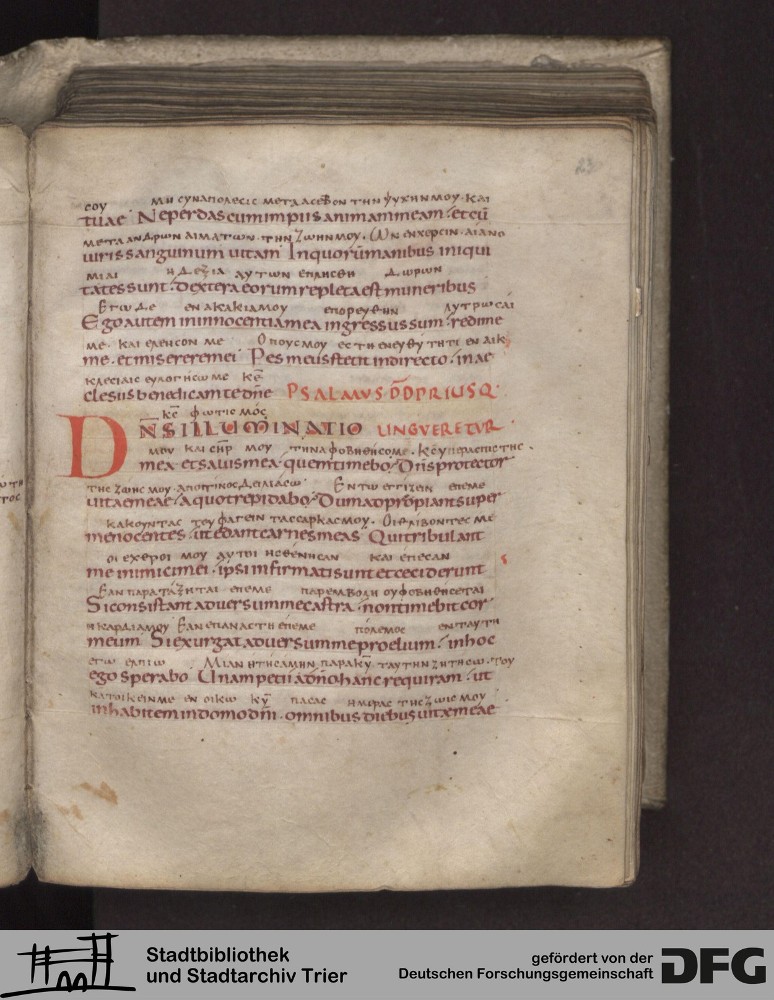 23
σου μη συναπολεσις μετα ασεβον την ψυχην μου · και
tuae · Neperdas cum impiis animam meam · et cū
μετα ανδρων αιματων · την ζωην μου · ων εν χερσιν · αι ανο
uiris sanguinum uitam In quorū manibus iniqui
μιαι η δεξια αυτων επλησθη δωρων
tates sunt · dextera eorum repleta est muneribus
Εγω δε εν ακακια μου επορευθην λυτρωσαι
Ego autem in innocentia mea ingressus sum · redime
με · και ελεησον με Ο πους μου εστη εν ευθυτητι εν αικ
me · et miserere mei Pes meus stetit in directo · in ae
κλεσιαις ευλογησω με κε̄
clesiis benedicam te dn̄e PSALMVS DD PRIUSQ ·
κε̄ φωτισμος
DN̄S ILLUMINATIO LINGVERETVR ·
μου και σηρ̄ μου τινα φοβηθησομε · κς̄ υπερασπιστης ·
mea · et salus mea · quem timebo · Dn̄s protector
της ζωης μου · απο τινος δειλιασω Εν τω εγγιζειν επεμε
uitae meae · a quo trepidabo · Dum adpropiant super
κακουντας του φαγειν τας σαρκας μου · Οι θλιβοντες με
me nocentes · ut edant carnes meas Qui tribulant
οι εχθροι μου αυτοι ησθενησαν και επεσαν
me inimici mei · ipsi infirmati sunt et ceciderunt
Εαν παραταξηται επεμε παρεμβολη ου φοβηθησεται
Si consistant aduersum me castra · non timebit cor
η καρδια μου Εαν επαναστη επεμε πολεμος εν ταυτη
meum Si exurgat aduersum me proelium · in hoc
εγω ελπιω Μιαν ητησαμην παρα κῡ ταυτην ζητησω · του
ego sperabo Unam petii a dn̄o hanc requiram · ut
κατοικειν με εν οικω κῡ πασας ημερας της ζωις μου
inhabitem in domo dn̄i · omnibus diebus uitae meae
Stadtbibliothek
und Stadtarchiv Trier
gefördert von der
Deutschen Forschungsgemeinschaft
DFG